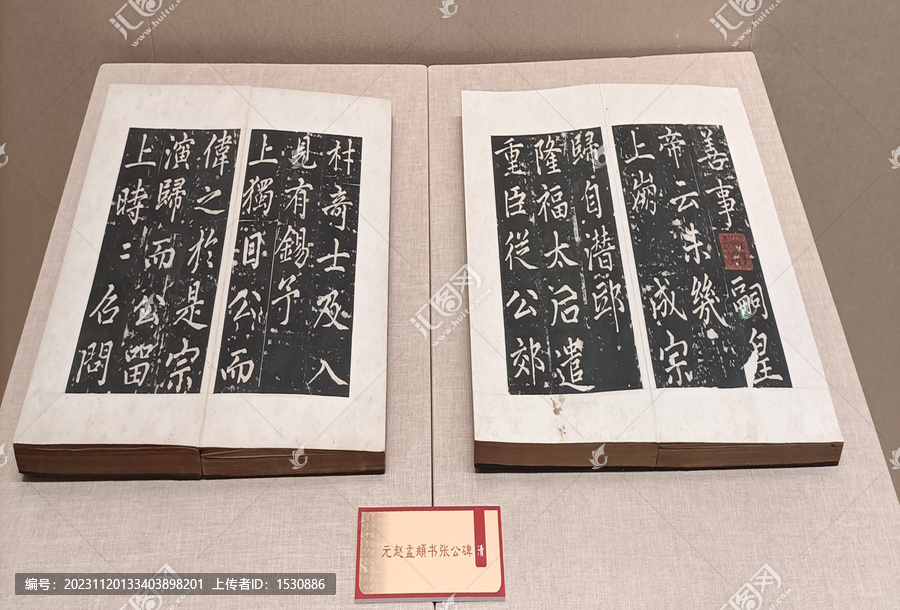 善事嗣皇
帝云未幾
上崩成宗
歸自潛邸
隆福太后遣
重臣從公郊
材奇士及入
見有錫予
上獨目公而
偉之於是宗
演歸而公留
上時〻召問
元赵孟頫书张公碑
清
编号：20231120133403898201 上传者ID：1530886